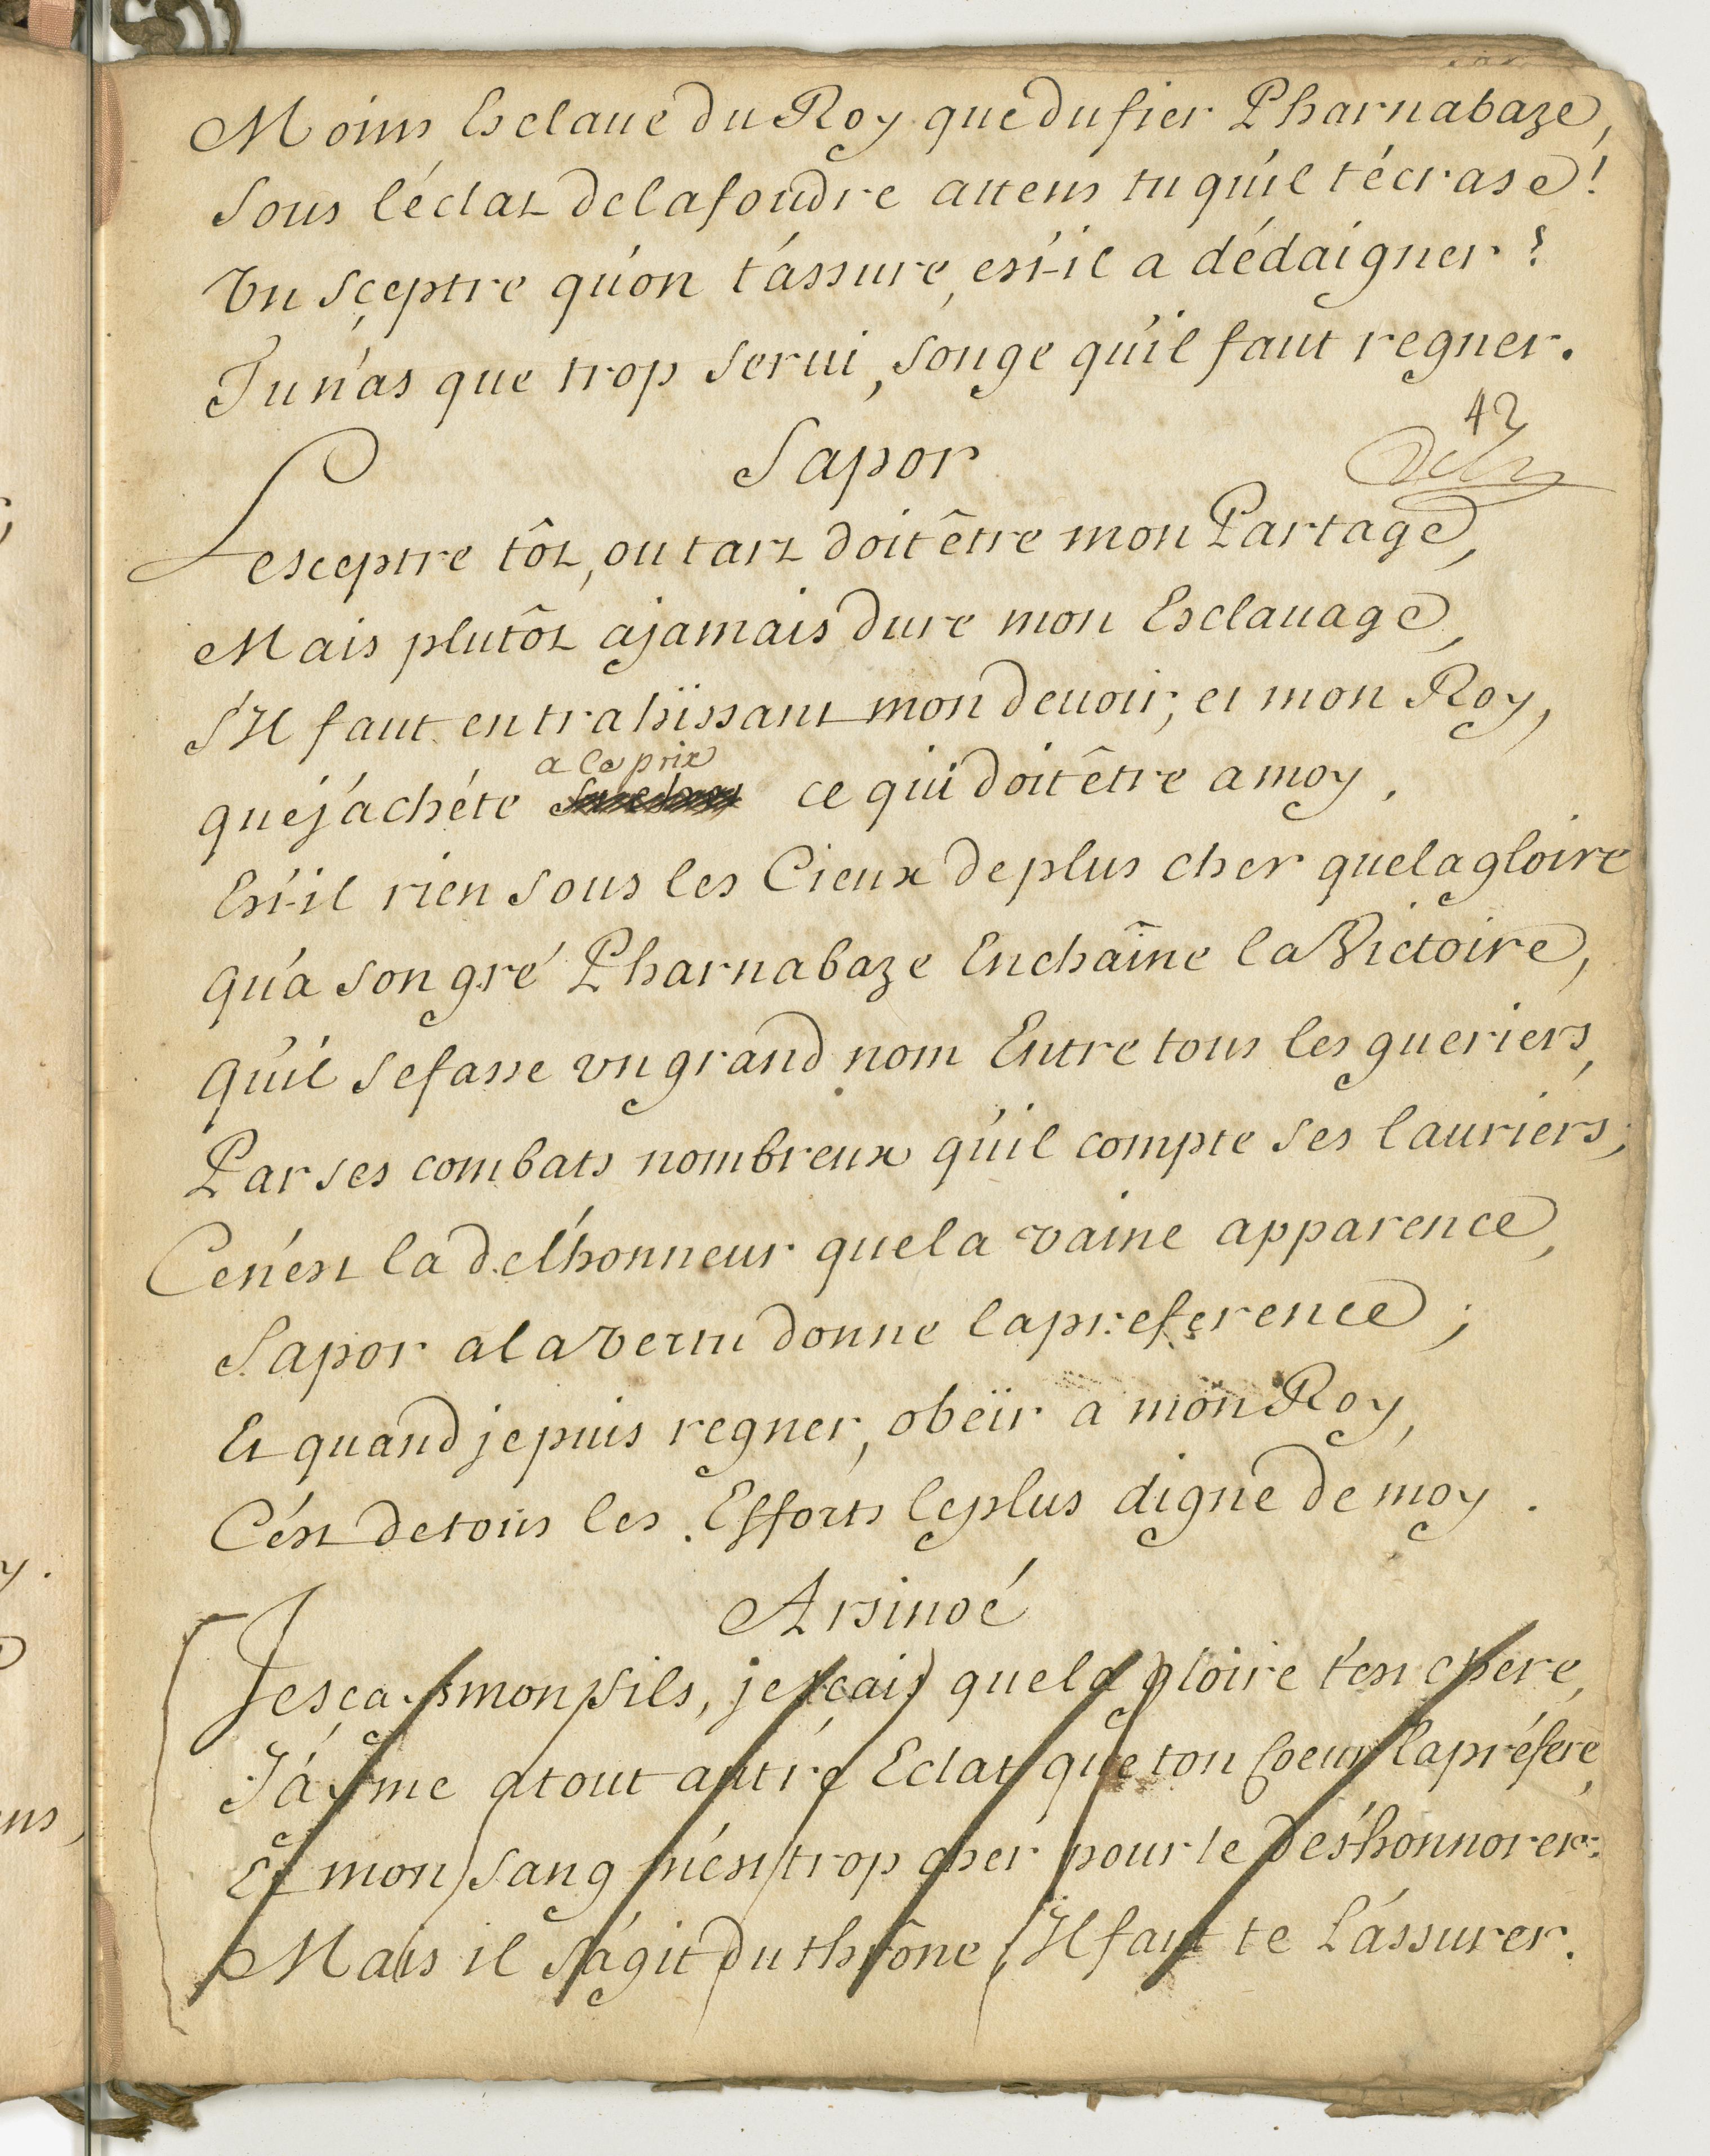 Moins Esclaue du Roy que du fier Pharnabaze,
Sous l'éclat de la foudre attens tu qu'il t'écrase!
Vn Sçeptre qu'on t'assure, est-il a dédaigner?
Tu n'as que trop Serui, Songe qu'il faut regner.
42
Sapor
Le sceptre tôt, ou tart doit être mon Partage,
Mais plutôt a jamais dure mon Esclauage,
S'Il faut en trahïssant mon deuoir, et mon Roy,
a ce prix
que j'achéte ce qui doit être a moy,
Est-il rien Sous les Cieux de plus cher que la gloire
qu'a Son gré Pharnabaze Enchaîne la Victoire,
Qu'il Se fasse vn grand nom Entre tous les gueriers,
Par ses combats nombreux qu'il compte Ses lauriers;
Ce n'est la de l'honneur que la vaine apparence,
Sapor a la vertu donne la preference;
Et quand je puis regner, obëir a mon Roy,
C'est de tous les Efforts le plus digne de moy.
Arsinoé
Je sçais mon fils, je sçais que la gloire t'est chere,
J'ayme a tout autre Eclat que ton Coeur la préfere,
Et mon Sang m'est trop cher pour le des'honnorer:
Mais il S'agit du thrône, Il faut te l'assurer.